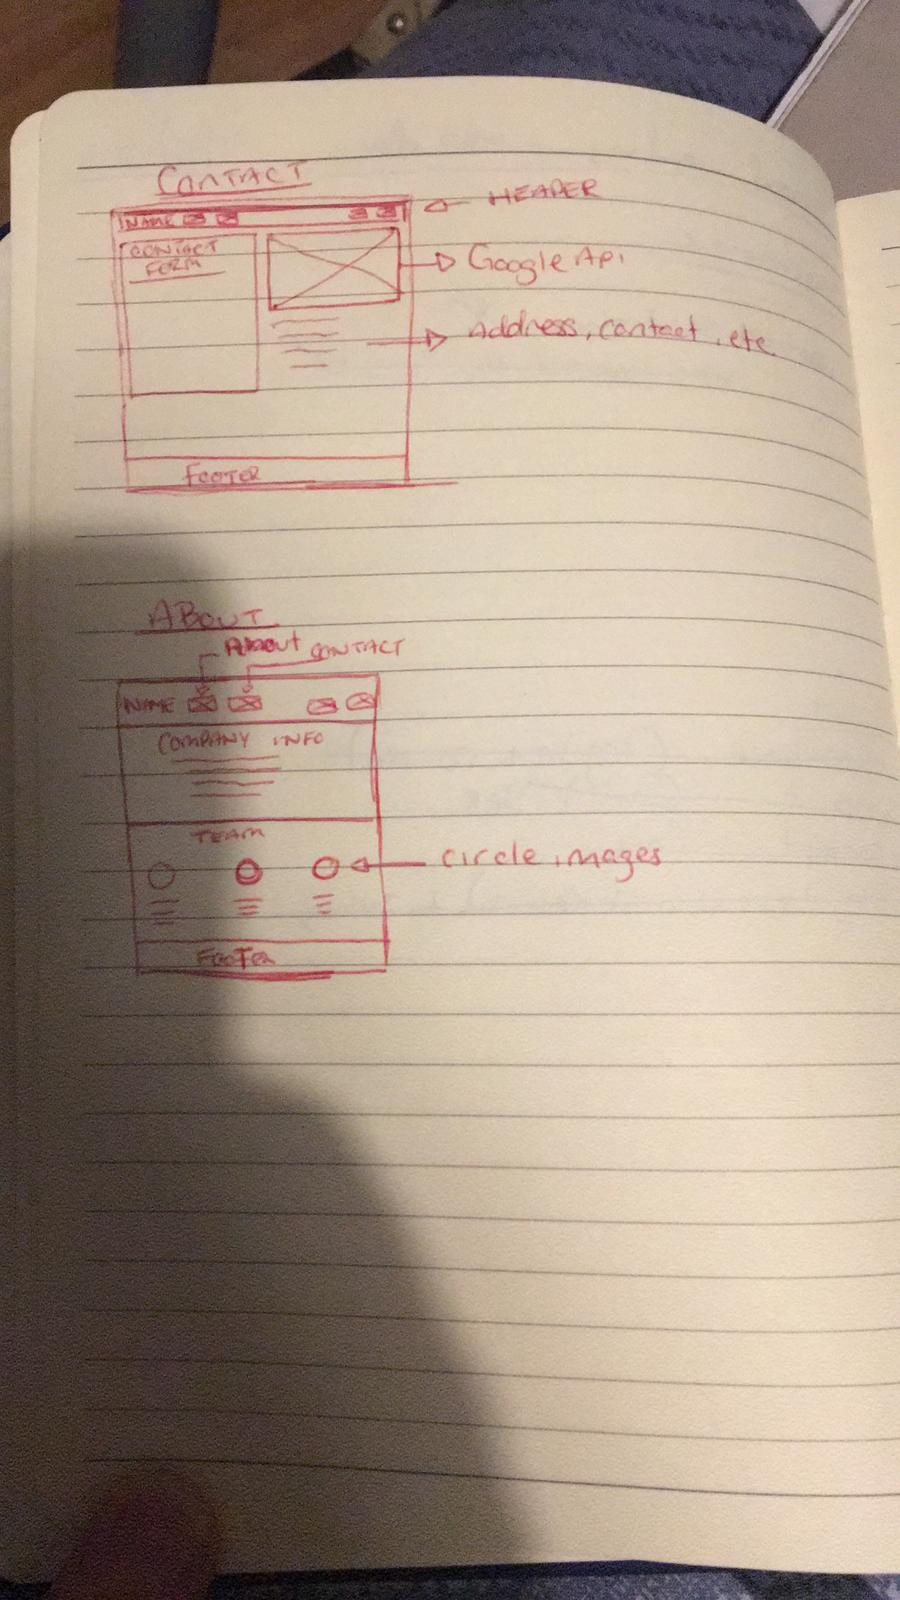 CONTACT
HEADER
NAME
CONTACT
FORM
Google Api
Address, contact, etc.
FOOTER
ABOUT
About CONTACT
NAME
COMPANY INFO
TEAM
circle images
FOOTER